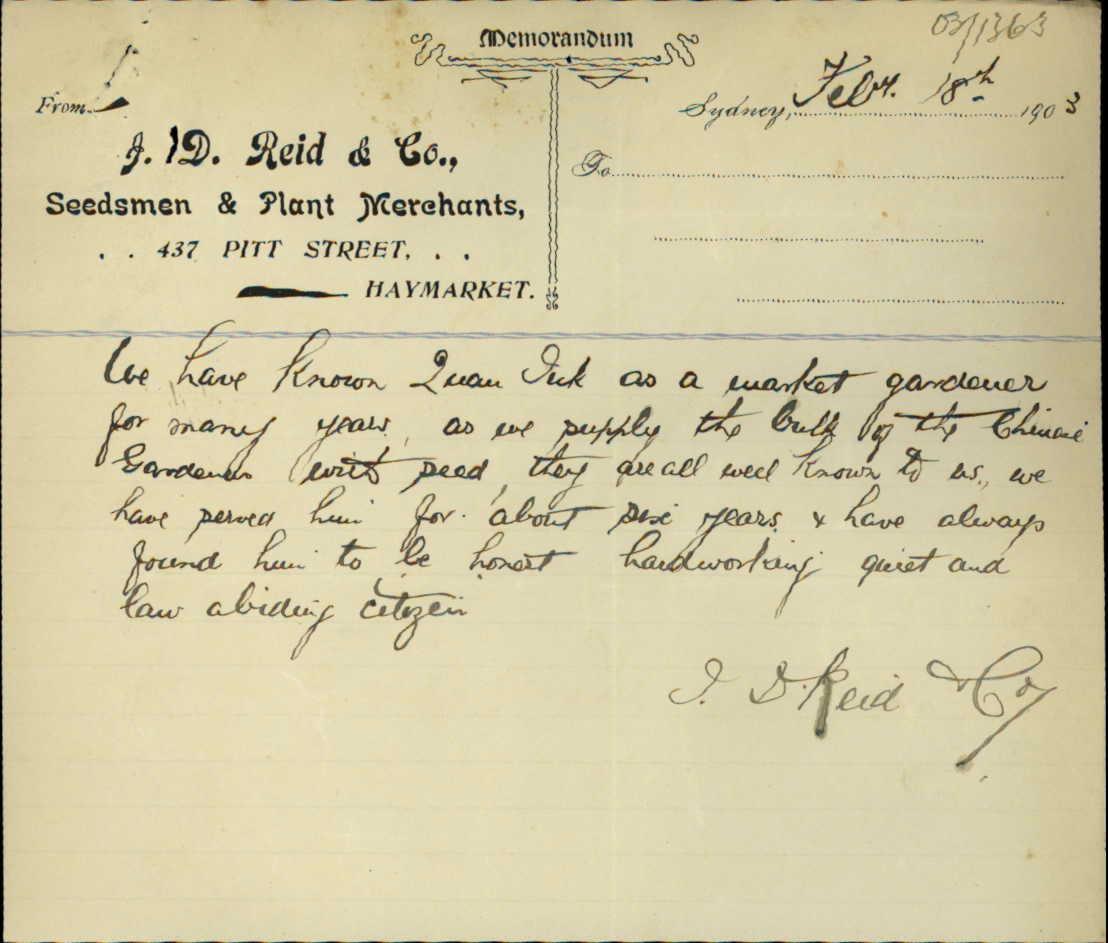 03/1363
Memorandum
From
Sydney, Feby. 18th 1903
J. D. Reid & Co.,
To
Seedsmen & Plant Merchants,
. . 437 PITT STREET, . .
HAYMARKET.
We have known Quan Ink as a market gardener
for many years, as we supply the bulk of the Chinese
Gardeners with seed, they are all well known to us, we
have served him for about six years & have always
found him to be honest hardworking quiet and
law abiding citizen
J. D. Reid & Co